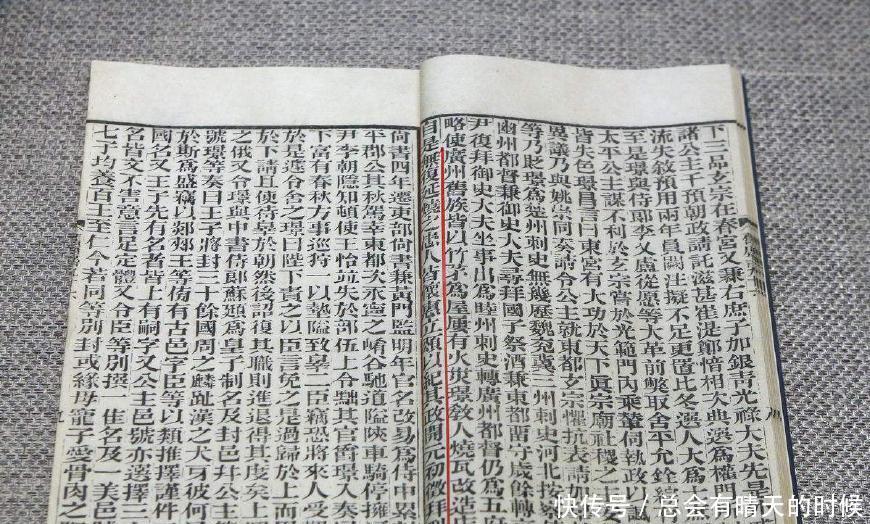 下三品玄宗在春宮又兼右庶子加銀青光祿大夫先是
諸公主干預朝政請託滋甚崔湜鄭愔相次典選為權門
流失敘預用兩年員闕注擬不足更置比冬選人大為
至是璟與侍郎李乂盧從愿等大革前弊取舍平允銓
太平公主謀不利於玄宗嘗於光範門內乘輦伺執政以
皆失色璟昌言曰東宮有大功於天下真宗廟社稷之
異議乃與姚崇同奏請令公主就東都玄宗懼抗表請
等乃貶璟為楚州刺史無幾歷魏兗冀三州刺史河北按
幽州都督兼御史大夫尋拜國子祭酒兼東都留守歲餘轉
尹復拜御史大夫坐事出為睦州刺史轉廣州都督仍為五府
略使廣州舊族皆以竹茅為屋屢有火災璟教人燒瓦改造
自是無復延燒之患人皆懷惠立頌以紀其政開元初徵拜
尚書四年遷吏部尚書兼黃門監明年官名改易為侍中累
平郡公其秋駕幸東都次永寧之崤谷馳道隘陝車騎停擁
尹李朝隱知頓使王怡並失於部伍上令黜其官爵璟入
下富有春秋方事巡狩一以墊隘致罪二臣竊恐將來人受
於是遽令舍之璟曰陛下責之以臣言免之是過歸於上而
於下請且使待罪於朝然後詔復其職則進退得其度矣上
之俄又令璟與中書侍郎蘇頲為皇子制名及封邑并公主
號璟等奏曰王子將封三十餘國周之麟趾漢之犬牙彼何
於斯為盛竊以郯郟王等傍有古邑字臣等以類推擇謹件
國名又王子先有名者皆上有嗣字又公主邑號亦選擇三
名皆文不害意言足定體又令臣等別撰一佳名及一美邑
七子均養百王至仁今若同等別封或緣母寵子愛骨肉之
快传号/总会有晴天的时候